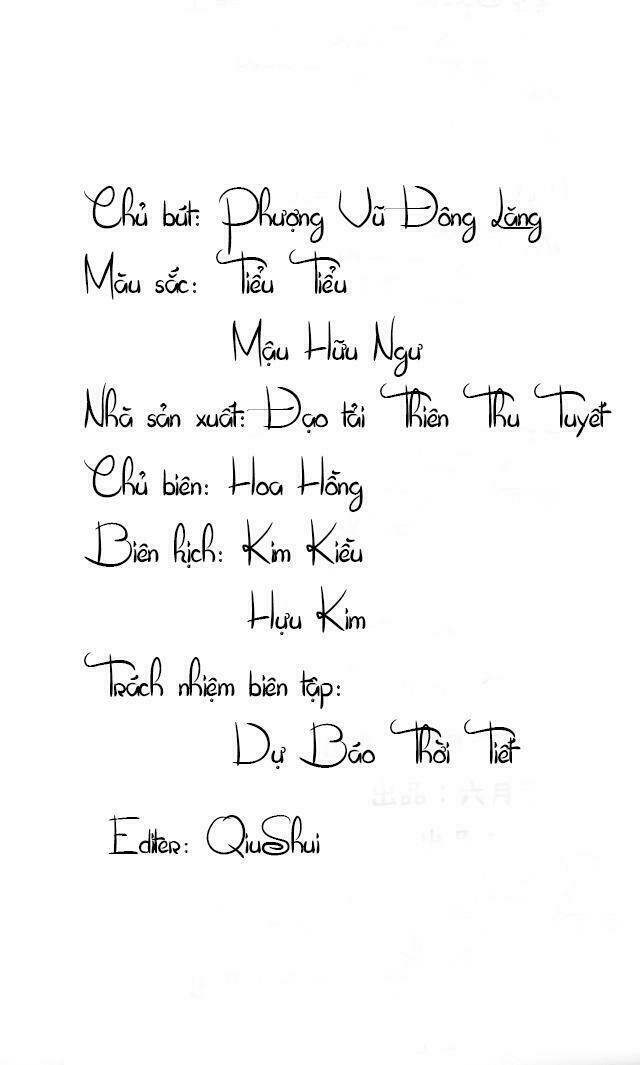 Chủ bút: Phượng Vũ Đông Lăng
Màu sắc: Tiểu Tiểu
Mậu Hữu Ngư
Nhà sản xuất: Đạo tải Thiên Thu Tuyết
Chủ biên: Hoa Hồng
Biên kịch: Kim Kiều
Hựu Kim
Trách nhiệm biên tập:
Dự Báo Thời Tiết
出品：六月
Editer: QiuShui